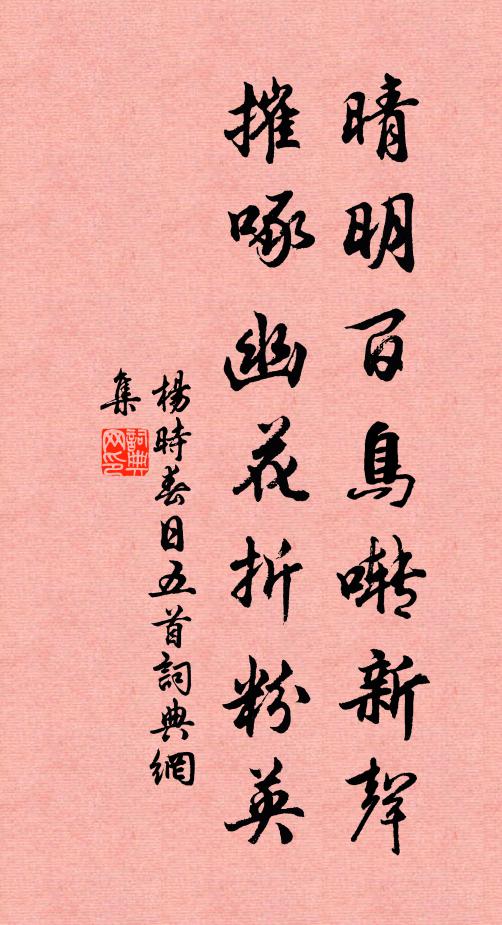 晴明百鳥囀新聲
摧啄幽花折粉英
楊時春日五首詞典網
集
詞典
网印